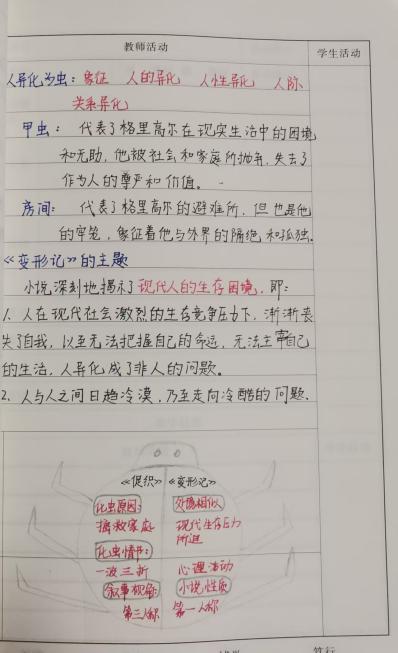 教师活动 学生活动
人异化为虫：象征 人的异化 人性异化 人际
关系异化
甲虫：代表了格里高尔在现实生活中的困境
和无助，他被社会和家庭所抛弃，失去了
作为人的尊严和价值。
房间：代表了格里高尔的避难所，但也是他
的牢笼，象征着他与外界的隔绝和孤独。
《变形记》的主题
小说深刻地揭示了现代人的生存困境，即：
1. 人在现代社会激烈的生存竞争压力下，渐渐丧
失了自我，以至无法把握自己的命运，无法主宰自己
的生活，人异化成了非人的问题。
2. 人与人之间日趋冷漠，乃至走向冷酷的问题．
《促织》 《变形记》
化虫原因： 外貌相似
拯救家庭 现代生存压力
所迫
化虫情节：
一波三折 心理活动
叙事视角： 小说性质
第三人称 第一人称